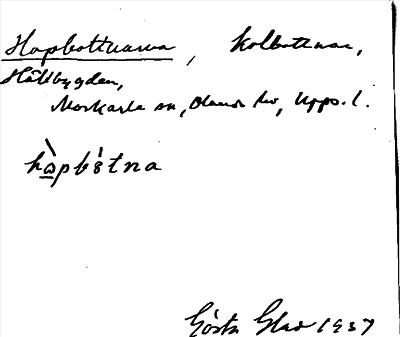 Hopbottnarna, kolbottnar,
Hållbygden,
Morkarla sn, Olands hd, Upps. l.
hòpbòtna
Gösta Glad 1937